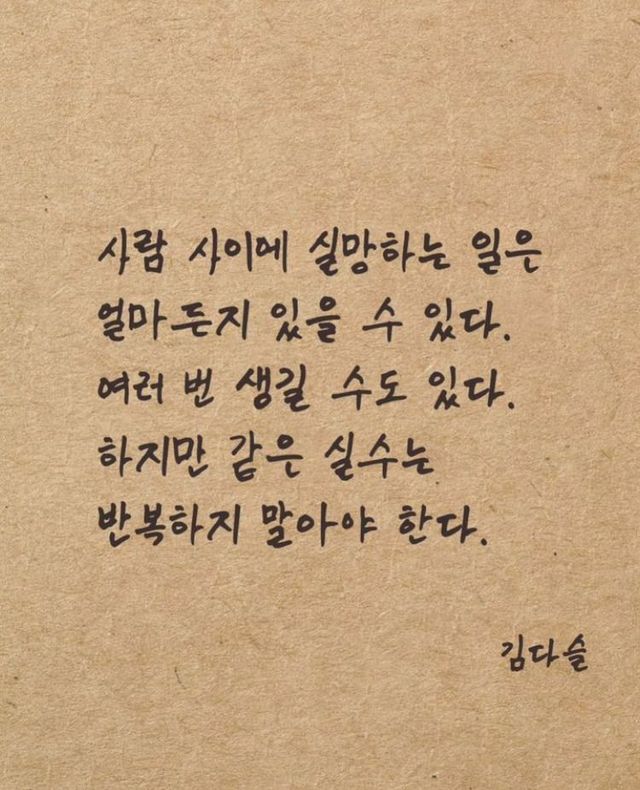 사람 사이에 실망하는 일은
얼마든지 있을 수 있다.
여러 번 생길 수도 있다.
하지만 같은 실수는
반복하지 말아야 한다.
김다슬